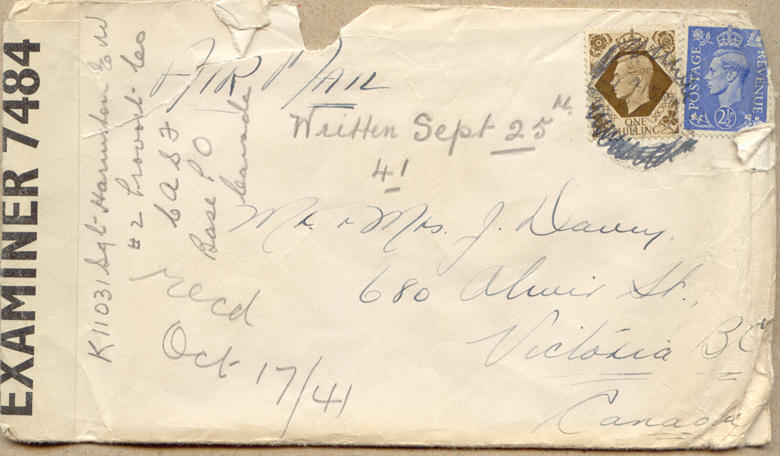 EXAMINER 7484
K11031 Sgt Harmston E W
#2 Provost Co
CASF
Base PO
Canada
AIR MAIL
Written Sept 25th
41
Mr & Mrs. J. Davey,
680 St.,
Victoria BC
Canada
Recd
Oct 17/41
ONE
SHILLING
POSTAGE
REVENUE
2½